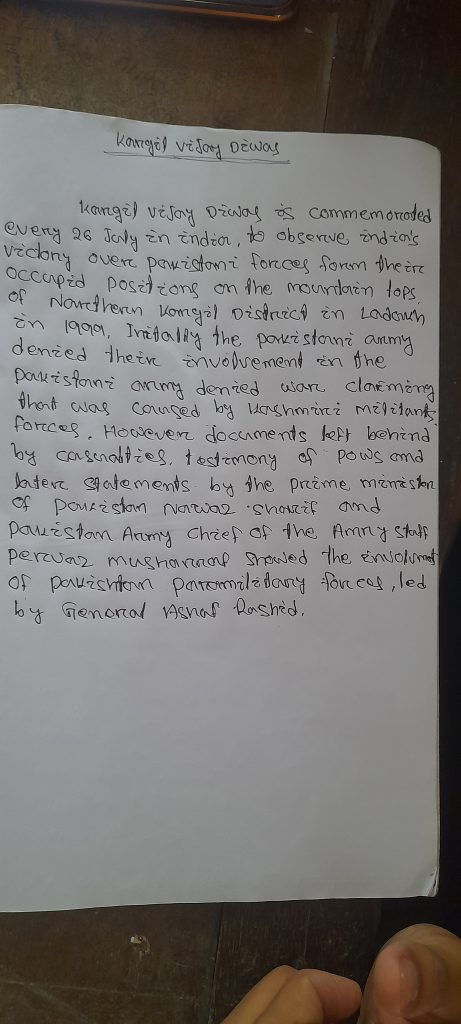 Kargil Vijay Diwas
Kargil Vijay Diwas is commemorated
every 26 July in india, to observe india's
victory over pakistani forces form their
occupid positions on the mountain tops
of Northern Kargil District in Ladakh
in 1999. Initally the pakistani army
denied their involvement in the
pakistani army denied war claiming
that was caused by kashmiri militants.
forces. However documents left behind
by casualties, testimony of pows and
later statements by the prime minister
of pakistan Nawaz sharif and
pakistan Army chief of the Army staff
pervaz musharraf showed the
of pakishtan paramilitary forces, led
by General Ashaf Rashid.